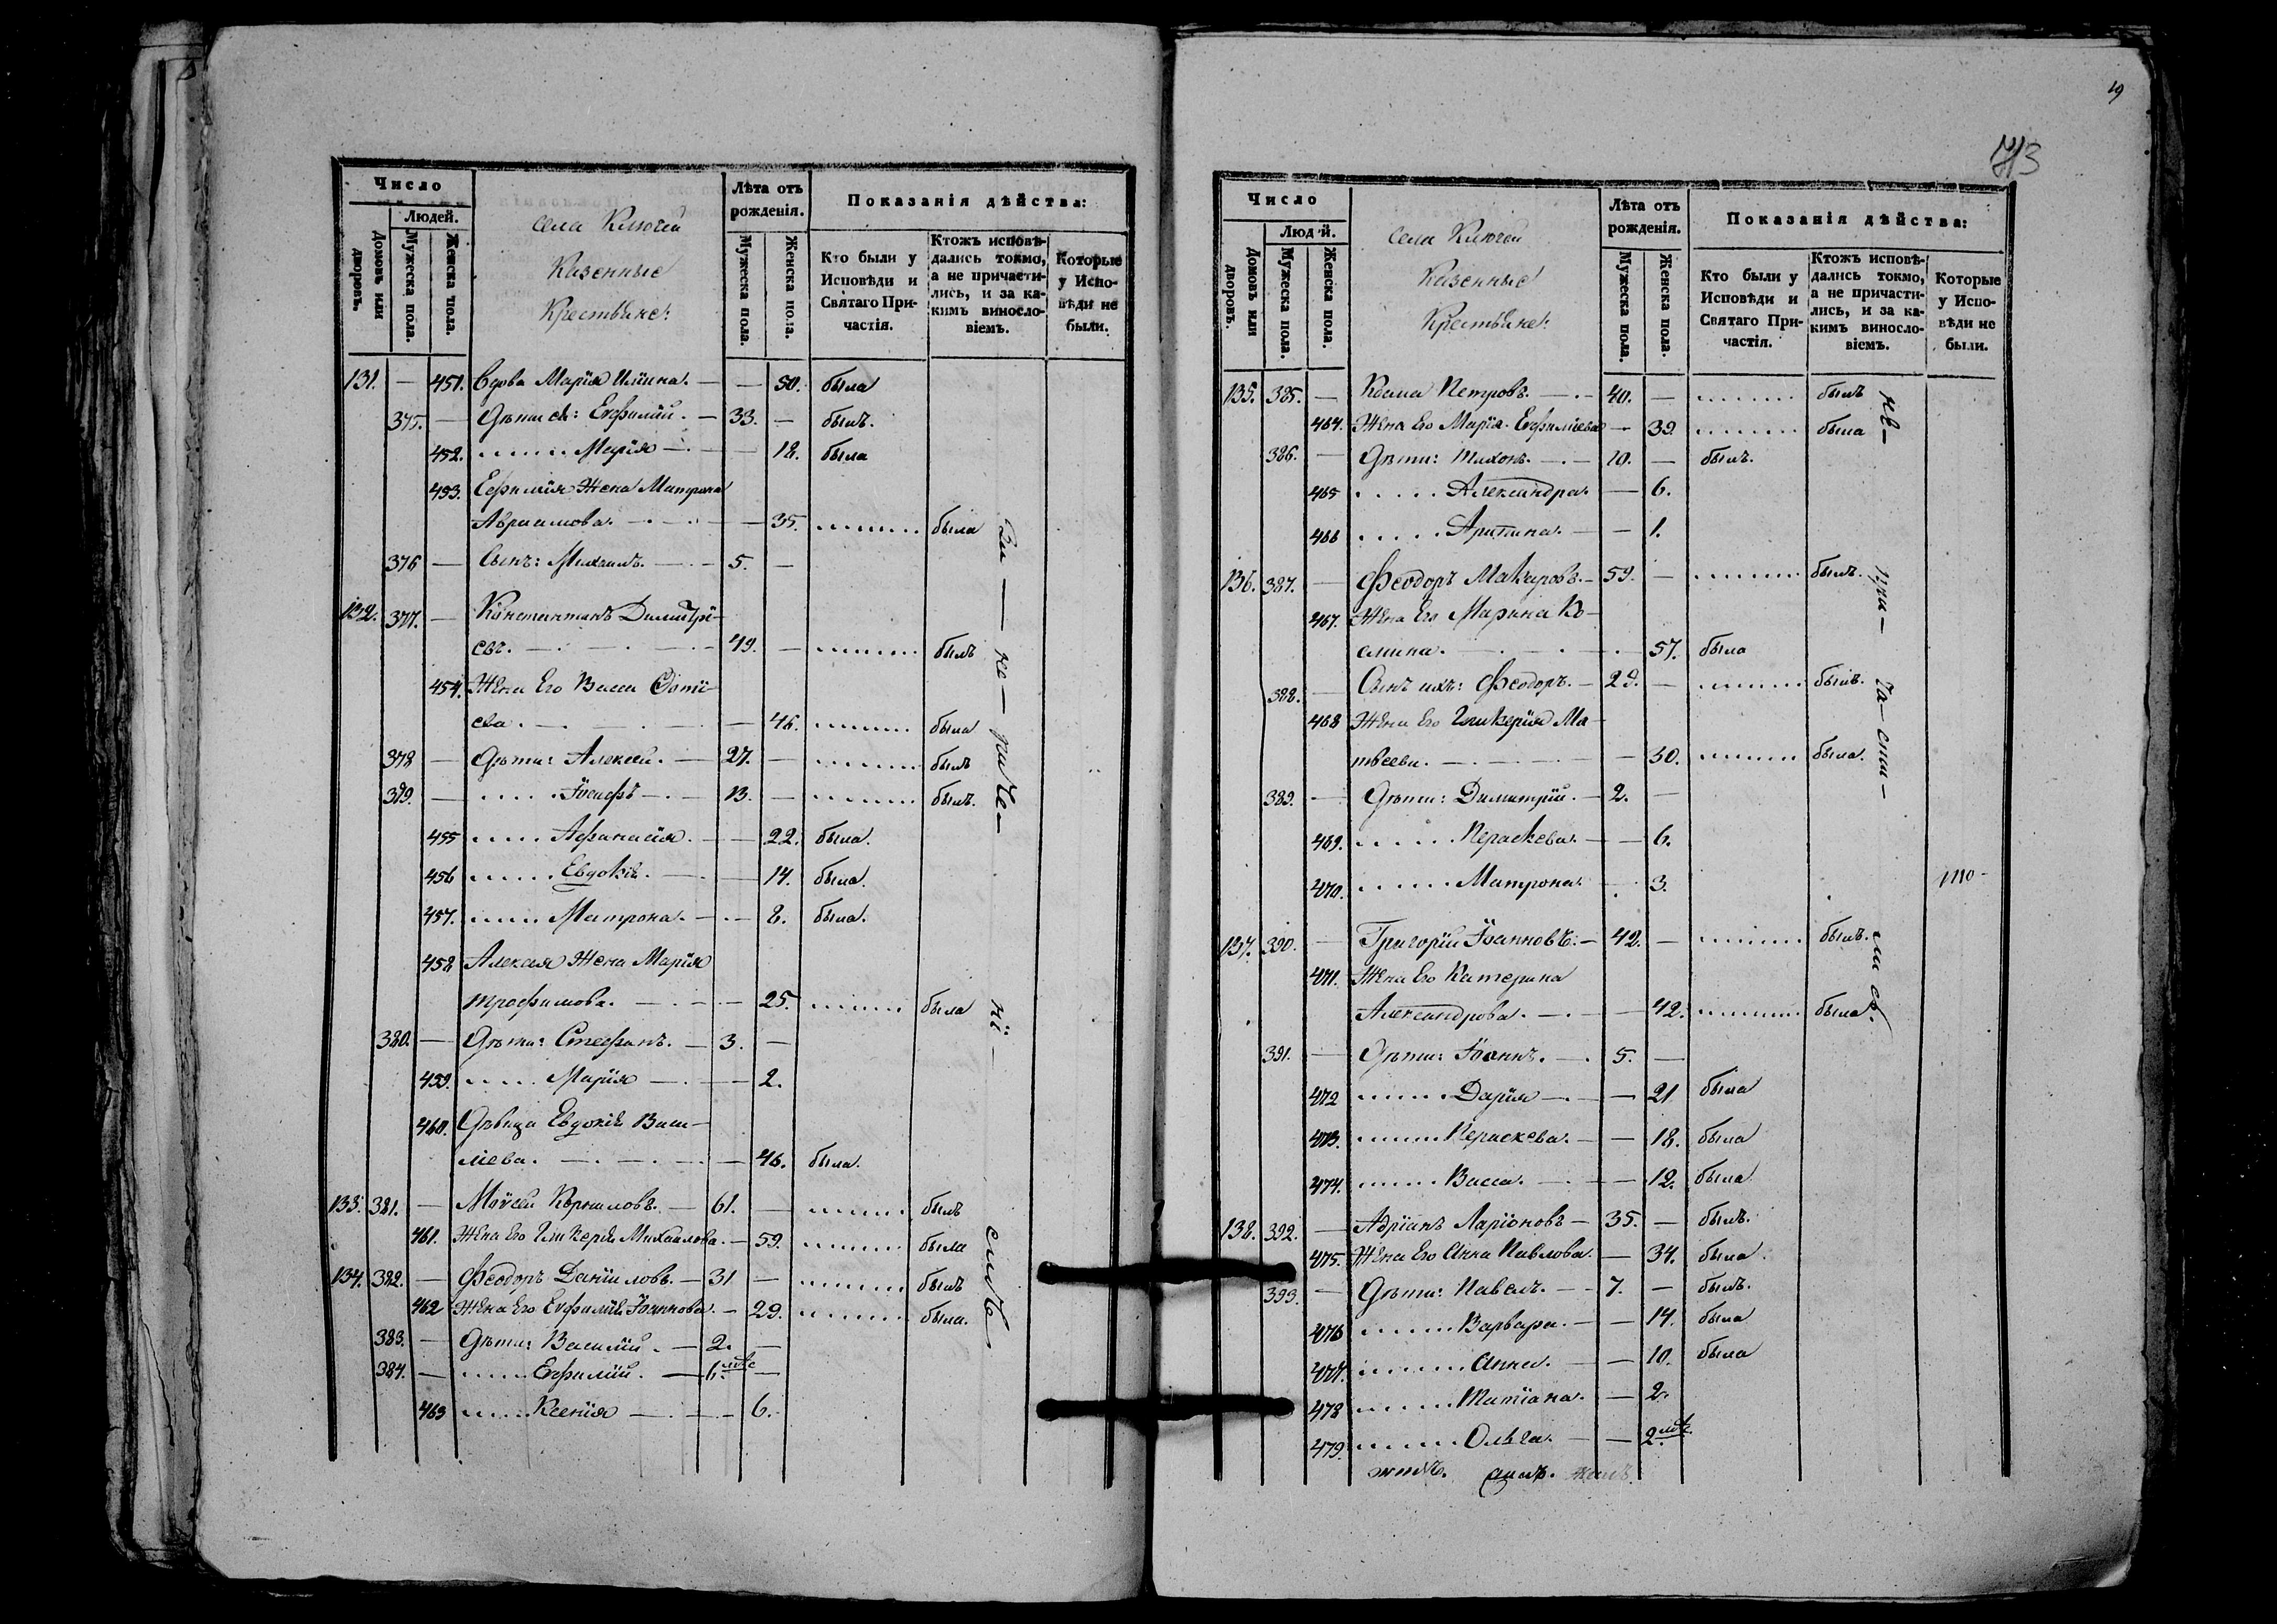 Число
Людей.
Домовъ или дворовъ.
Мужеска пола.
Женска пола.
села Ключей
Казенные
Крестьяне:
Лѣта отъ рожденія.
Мужеска пола.
Женска пола.
Показанія дѣйства:
Кто были у Исповѣди и Святаго Причастія.
Ктожъ исповѣдались токмо, а не причастились, и за какимъ винословіемъ.
Которые у Исповѣди не были.
131. — 451. Вдова Марія Ильина. — — 50. была
375. — Дѣти ея: Евфимій. — 33. — былъ.
452. ...... Марія — — 18. была
453. Евфимія Жена Матрона
Авраамова. — — 35. ........ была
376 — Сынъ: Михаилъ. — 5. —
132. 377. — Константинъ Димитрі-
евъ. — 49. — ........ былъ
454. Жена Его Васса Фоті-
ева. — — 46. ........ была
378 — Дѣти: Алексей. — 27. — ........ былъ
379. — ..... Іосифъ — 13. — ........ былъ.
455 ..... Афанасія. — — 22. была.
456 ...... Евдокія. — — 14. была.
457. ..... Матрона. — — 8. была.
458 Алексея Жена Марія
Трофимова. — — 25. ....... была
380. — Дѣти: Стефанъ. — 3. —
459. ..... Марія — — 2.
460. Дѣвица Евдокія Васи-
льева. — — 46. была.
133. 381. — Моѵсей Корниловъ. — 61. — ....... былъ
461. Жена Его Гликерія Михайлова. — 59. ....... была
134. 382. — Феодоръ Даніиловъ. — 31 — ....... былъ
462 Жена Его Евфимія Іоаннова. — 29. ....... была.
383. — Дѣти: Василій. — 2. —
384. — ..... Евфимій. — 6. мѣс —
463 ..... Ксенія — — 6.
за — не — приче — ні — емъ
19
713
Число
Люд й.
Домовъ или дворовъ.
Мужеска пола.
Женска пола.
Села Ключей
Казенные
Крестьяне:
Лѣта отъ рожденія.
Мужеска пола.
Женска пола.
Показанія дѣйства:
Кто были у Исповѣди и Святаго Причастія.
Ктожъ исповѣдались токмо, а не причастились, и за какимъ винословіемъ.
Которые у Исповѣди не были.
135. 385. — Косма Петровъ. — 40. — ........ былъ
464. Жена Его Марія Евфиміева — 39. ........ была
386. — Дѣти: Тихонъ. — 10. — былъ.
465 ..... Александра. — 6.
466 ..... Арипина. — — 1.
136. 387. — Феодоръ Макаровъ. — 59. — ........ былъ.
467. Жена Его Марина Ко-
смина. — — 57. была
388. — Сынъ ихъ: Феодоръ. — 29. — ........ былъ.
468 Жена Его Гликерія Ма-
твеева. — — 30. ........ была.
389. — Дѣти: Димитрій. — 2. —
469. ...... Пераскева. — — 6.
470. ...... Матрона. — 3.
137. 390. — Григорій Іоанновъ. — 42. — ........ былъ.
471. Жена Его Катерина
Александрова. — — 42. ........ была.
391. — Дѣти: Іоаннъ. — 5. —
472 ...... Дарія — — 21 была
473. ...... Пераскева. — — 18. была
474. ...... Васса. — — 12. была
138. 392. — Адріанъ Ларіоновъ — 35. — былъ.
475. Жена Его Анна Павлова. — 34. была
393. — Дѣти: Павелъ. — 7. — былъ.
476 ....... Варвара. — — 14. была
477. ....... Анна. — — 10. была
478 ....... Татіана. — 2.
479. ....... Ольга. — — 2. мѣс.
не — при — ча — сти — лись.